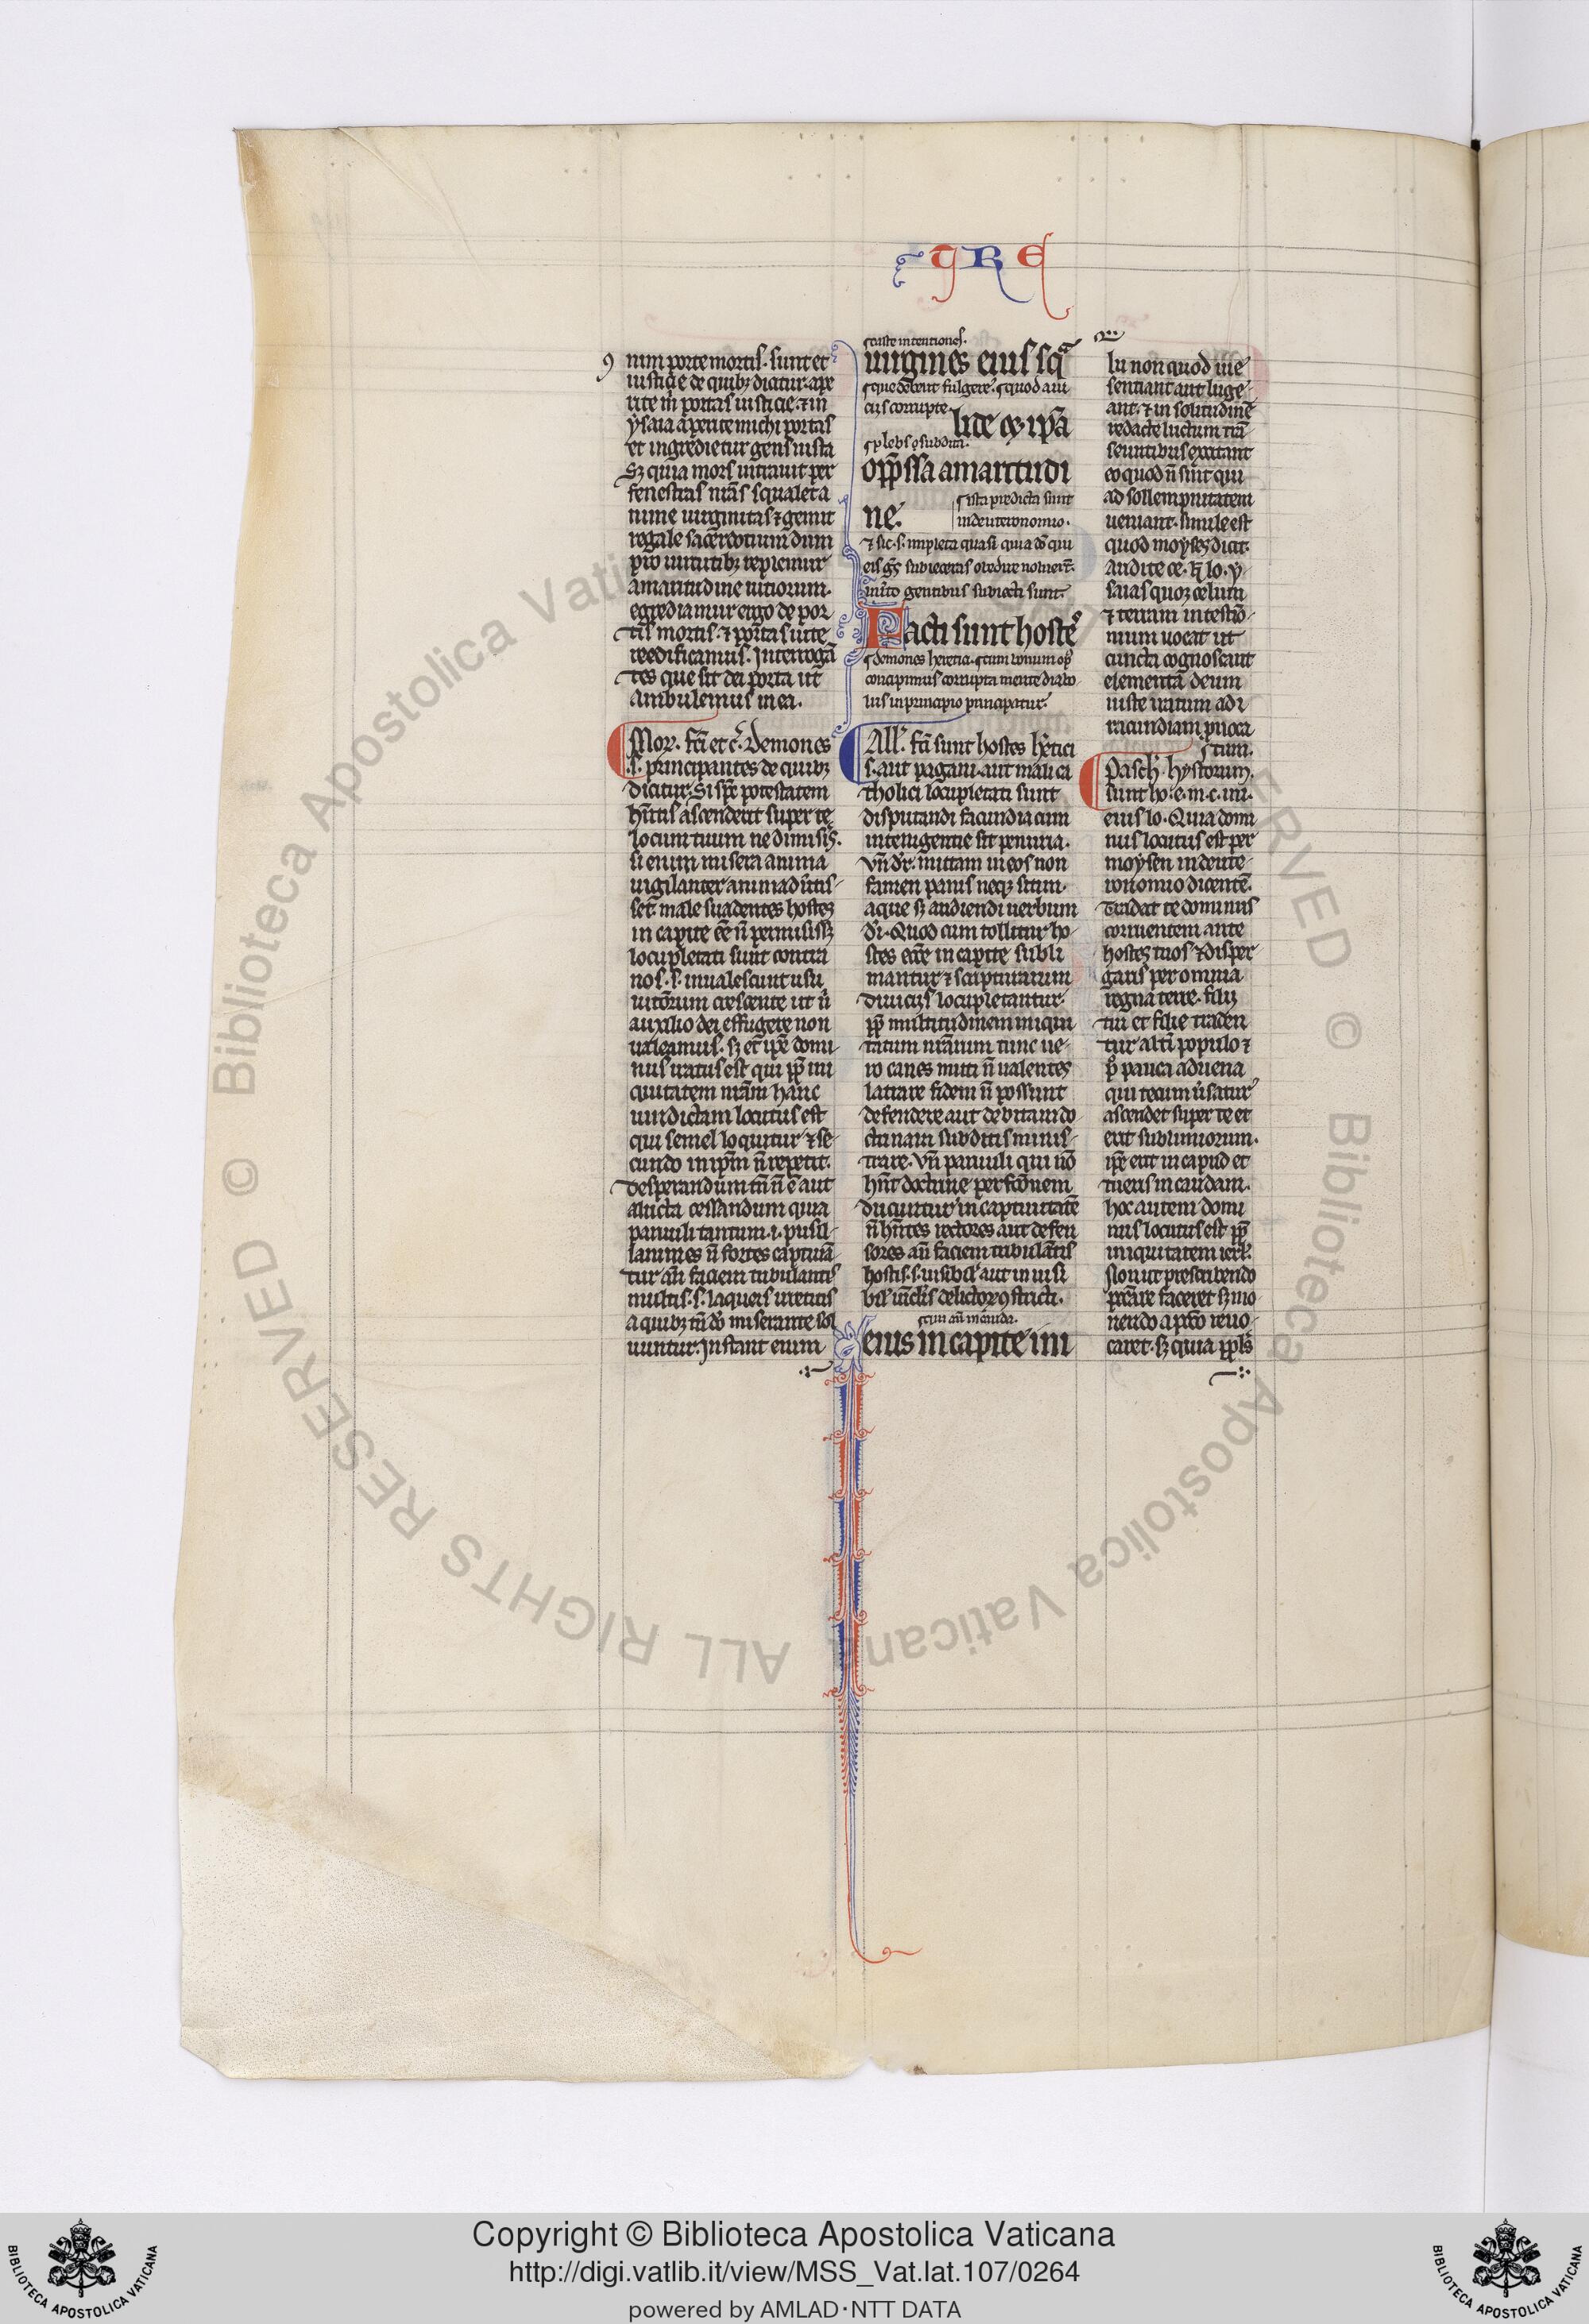 TRE
num porte mortis. sunt et
iusticie de quibꝫ dicitur. ape
rite m̄ portas iusticie. ⁊ in
ysaia aperite michi portas
et ingredietur gens iusta
Sꝫ quia mors intrauit per
fenestras nr̄as squalent a
nime uirginitas ⁊ gemit
regale sacerdotium dum
pro uirtutibꝫ replemur
amaritudine uitiorum.
egrediamur ergo de por
tis mortis. ⁊ portas uite
reedificamus. Interrogā
tes que sit dei porta ut
ambulemus in ea.
Mor. fc̄i et c̄. demones
.s. principantes de quibꝫ
dicitur. Si spc̄ potestatem
hn̄tis ascenderit super te
locum tuum ne dimis̄.
si enim misera anima
uigilanter animaduertis
set. male suadentes hostes
in capite eē n̄ permisissꝫ
locupletati sunt contra
nos. s. inualescunt usu
uitiorum crescente ut n̄
auxilio dei effugere non
ualeamus. sꝫ et ip̄e domi
nus iratus est qui pp̄ ini
quitatem nr̄am hanc
uindictam locutus est
qui semel loquitur ⁊ se
cundo in ip̄m n̄ repetit.
desperandum tn̄ n̄ ē aut
a luctu cessandum quia
paruuli tantum .i. pusil
lanimes n̄ fortes captiuā
tur an̄ faciem tribulantis
multis. s. laqueis irretitis
a quibꝫ tn̄ do miserante sol
uuntur. Instant enim
iuste intentiones.
uirgines eius sq̄
que debent fulgere. quod au
eius corrupte.
lide ⁊ ip̄a
plebs subdita.
opp̄ssa amaritudi
ne. ista predicta sunt
in deuteronomio.
⁊ sic. s. impleta quasi quia do qui
eis ḡs subiecerat obedire noluer̄t.
mr̄ito gentibus subiecti sunt.
Facti sunt hostes
demones heretici. cum bonum op̄
concipimus corrupta mente diabo
lus in principio principatur.
All'. fc̄i sunt hostes hr̄etici
s. aut pagani. aut mali ca
tholici locupletati sunt
disputandi facundia cum
intelligentie sit penuria.
vn̄ dr̄. mittam in eos non
famen panis neqꝫ sitim
aque sꝫ audiendi uerbum
dī. Quod cum tollitur ho
stes ecc̄e in capite subli
mantur ⁊ scripturarum
diuiciis locupletantur.
pp̄ multitudinem iniqui
tatum nr̄arum tunc ue
ro canes muti n̄ ualentes
latrare fidem n̄ possunt
defendere aut debitam do
ctrinam subditis minis
trare. Vn̄ paruuli qui nō
hn̄t doctrine perfc̄ōnem
ducuntur in captiuitatē
n̄ hn̄tes rectores aut defen
sores an̄ faciem tribulātis
hostis. s. uisibil' aut inuisi
bil' uīclīs delictoꝝ stricti.
cum an̄ in cauda.
eius in capite ini
lu non quod uie
sentiant aut luge
ant. ⁊ in solitudinē
redacte luctum trā
seuntibus excitant
eo quod n̄ sint qui
ad sollempnitatem
ueniant. simile est
quod moyses dicit.
Audite ce. ⁊ lo. y
saias quoqꝫ celum
⁊ terram in testiō
nium uocat ut
cuncta cognoscant
elementa deum
iuste iratum ad i
racundiam prouoca
tum.
Pasch'. hystorum.
sunt ho. e. in. c. ini.
eius lo. Quia domi
nus locutus est per
moysen in deute
ronomio dicentē.
Tradat te dominus
corruentem ante
hostes tuos ⁊ disper
garis per omnia
regna terre. filii
tui et filie traden
tur alti populo ⁊
p̄ pauca aduena
qui tecum ūsatur
ascendet super te et
erit sublimiorum.
ip̄e erit in capud et
tu eris in caudam.
hoc autem domi
nus locutus est pp̄
iniquitatem ierl'.
Non ut prescribendo
pecc̄are faceret sꝫ mo
nendo a pcc̄ō reuo
caret. sꝫ quia ppl's
Copyright © Biblioteca Apostolica Vaticana
http://digi.vatlib.it/view/MSS_Vat.lat.107/0264
powered by AMLAD·NTT DATA
BIBLIOTECA APOSTOLICA VATICANA
BIBLIOTECA APOSTOLICA VATICANA
© Biblioteca Apostolica Vaticana ALL RIGHTS RESERVED